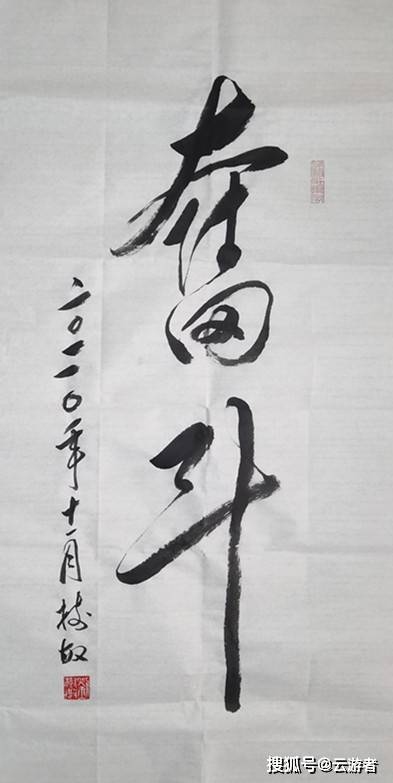 奮斗
二〇二〇年十一月
搜狐号@云游者